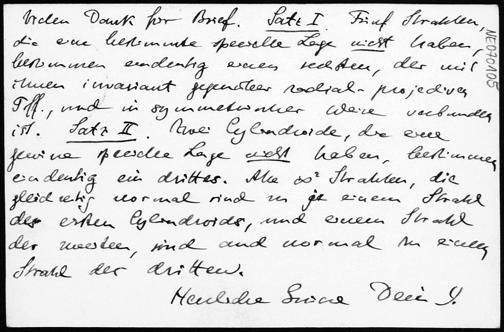 Vielen Dank für Brief. Satz I. Fünf Strahlen,
die eine bestimmte spezielle Lage nicht haben,
bestimmen eindeutig einen sechsten, der mit
ihnen invariant gegenüber radial-projektiven
Tff., und in symmetrischer Weise verbunden
ist. Satz II. Zwei Cylindroide, die eine
gewisse spezielle Lage nicht haben, bestimmen
eindeutig ein drittes. Alle ∞² Strahlen, die
gleichzeitig normal sind zu je einem Strahl
des ersten Cylindroids, und einem Strahl
der zweiten, sind auch normal zu einem
Strahl der dritten.
Herzliche Grüsse Dein